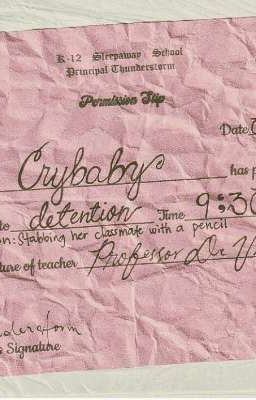 K-12 Sleepaway School
Principal Thunderstorm
Permission Slip
Date
Crybaby has p
to detention Time 9:30
on: Stabbing her classmate with a pencil
ture of teacher Professor Dr
Signature